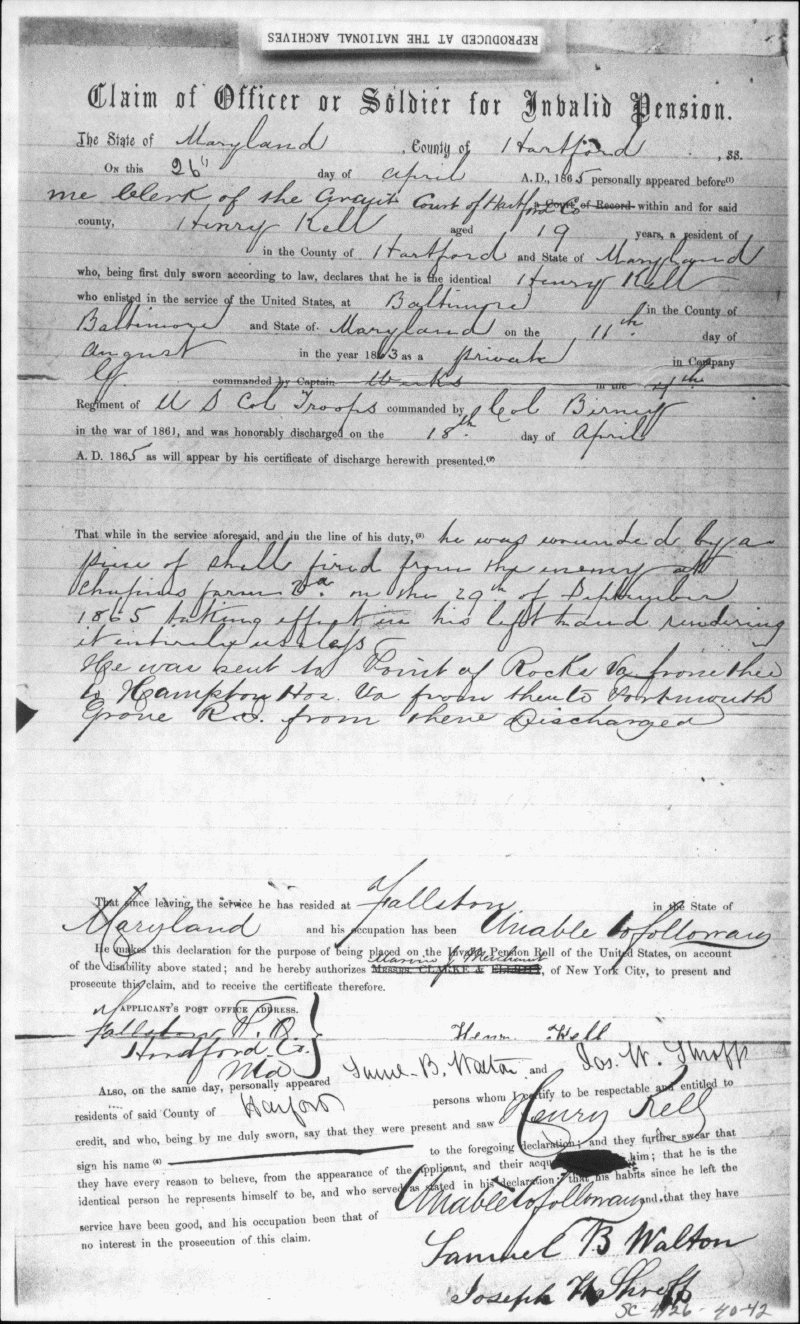 REPRODUCED AT THE NATIONAL ARCHIVES
Claim of Officer or Soldier for Invalid Pension.
The State of Maryland , County of Hartford , ss.
On this 26th day of April A.D., 1865 personally appeared before(1)
me Clerk of the Circuit Court of Hartford Co a Court of Record within and for said
county, Henry Kell aged 19 years, a resident of
in the County of Hartford and State of Maryland
who, being first duly sworn according to law, declares that he is the identical Henry Kell
who enlisted in the service of the United States, at Baltimore in the County of
Baltimore and State of Maryland on the 11th day of
August in the year 1863 as a private in Company
G. commanded by Captain Weeks in the 4th
Regiment of U S Col Troops commanded by Col Birney
in the war of 1861, and was honorably discharged on the 18th day of April
A. D. 1865 as will appear by his certificate of discharge herewith presented.(2)
That while in the service aforesaid, and in the line of his duty,(3) he was wounded by a
piece of shell fired from the enemy at
Chapins farm Va on the 29th of September
1865 taking effect in his left hand rendering
it intirely useless
He was sent to Point of Rocks Va from
to Hampton Hos. Va from Portmouth
Grove from thene Discharged
That since leaving the service he has resided at Fallston in the State of
Maryland and his occupation has been Unable to follow any
He makes this declaration for the purpose of being placed on the Invalid Pension Roll of the United States, on account
of the disability above stated; and he hereby authorizes Messrs. CLARKE & , of New York City, to present and
prosecute this claim, and to receive the certificate therefore.
APPLICANT'S POST OFFICE ADDRESS.
Fallston P. O
Hartford Co.
Md
Henry Kell
Also, on the same day, personally appeared Saml. B. Walton and Jos. W. Shroff
residents of said County of Harford persons whom I certify to be respectable and entitled to
credit, and who, being by me duly sworn, say that they were present and saw Henry Kell
sign his name (4) to the foregoing declaration; and they further swear that
they have every reason to believe, from the appearance of the applicant, and their him; that he is the
identical person he represents himself to be, and who served as stated in his declaration; that his habits since he left the
service have been good, and his occupation been that of Unable to follow any and that they have
no interest in the prosecution of this claim.
Samuel B Walton
Joseph W Shroff
SC-4126-40-42